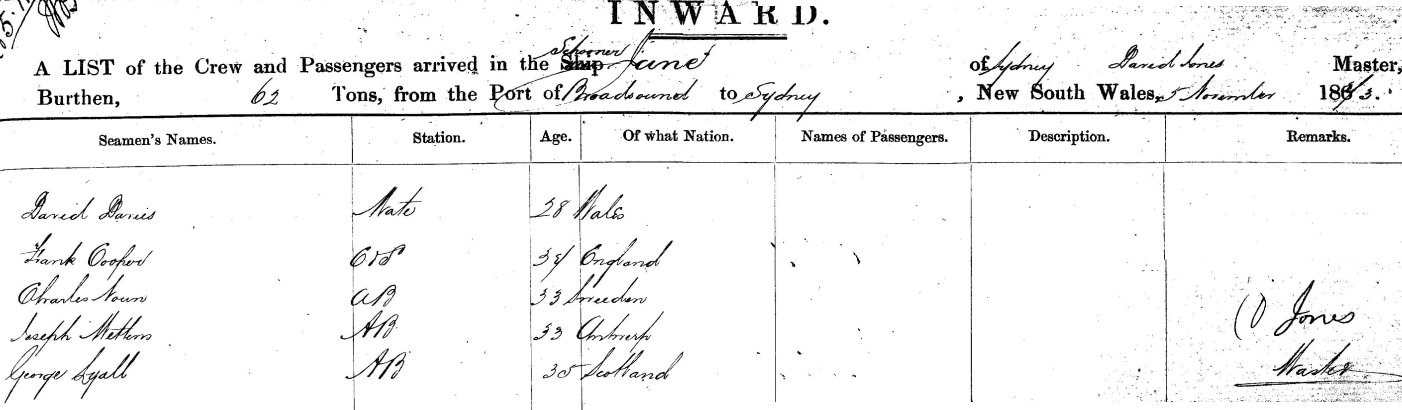 INWARD.
A LIST of the Crew and Passengers arrived in the Ship Schooner Jane of Sydney David Jones Master,
Burthen, 62 Tons, from the Port of Broadsound to Sydney, New South Wales, 5 November 1873.
Seamen's Names. Station. Age. Of what Nation. Names of Passengers. Description. Remarks.
David Davies Mate 28 Wales
Frank Cooper 34 England
Charles Noun AB 33 Sweden
Joseph AB 33 Antwerp
George Lyall AB 35 Scotland
Jones
Master